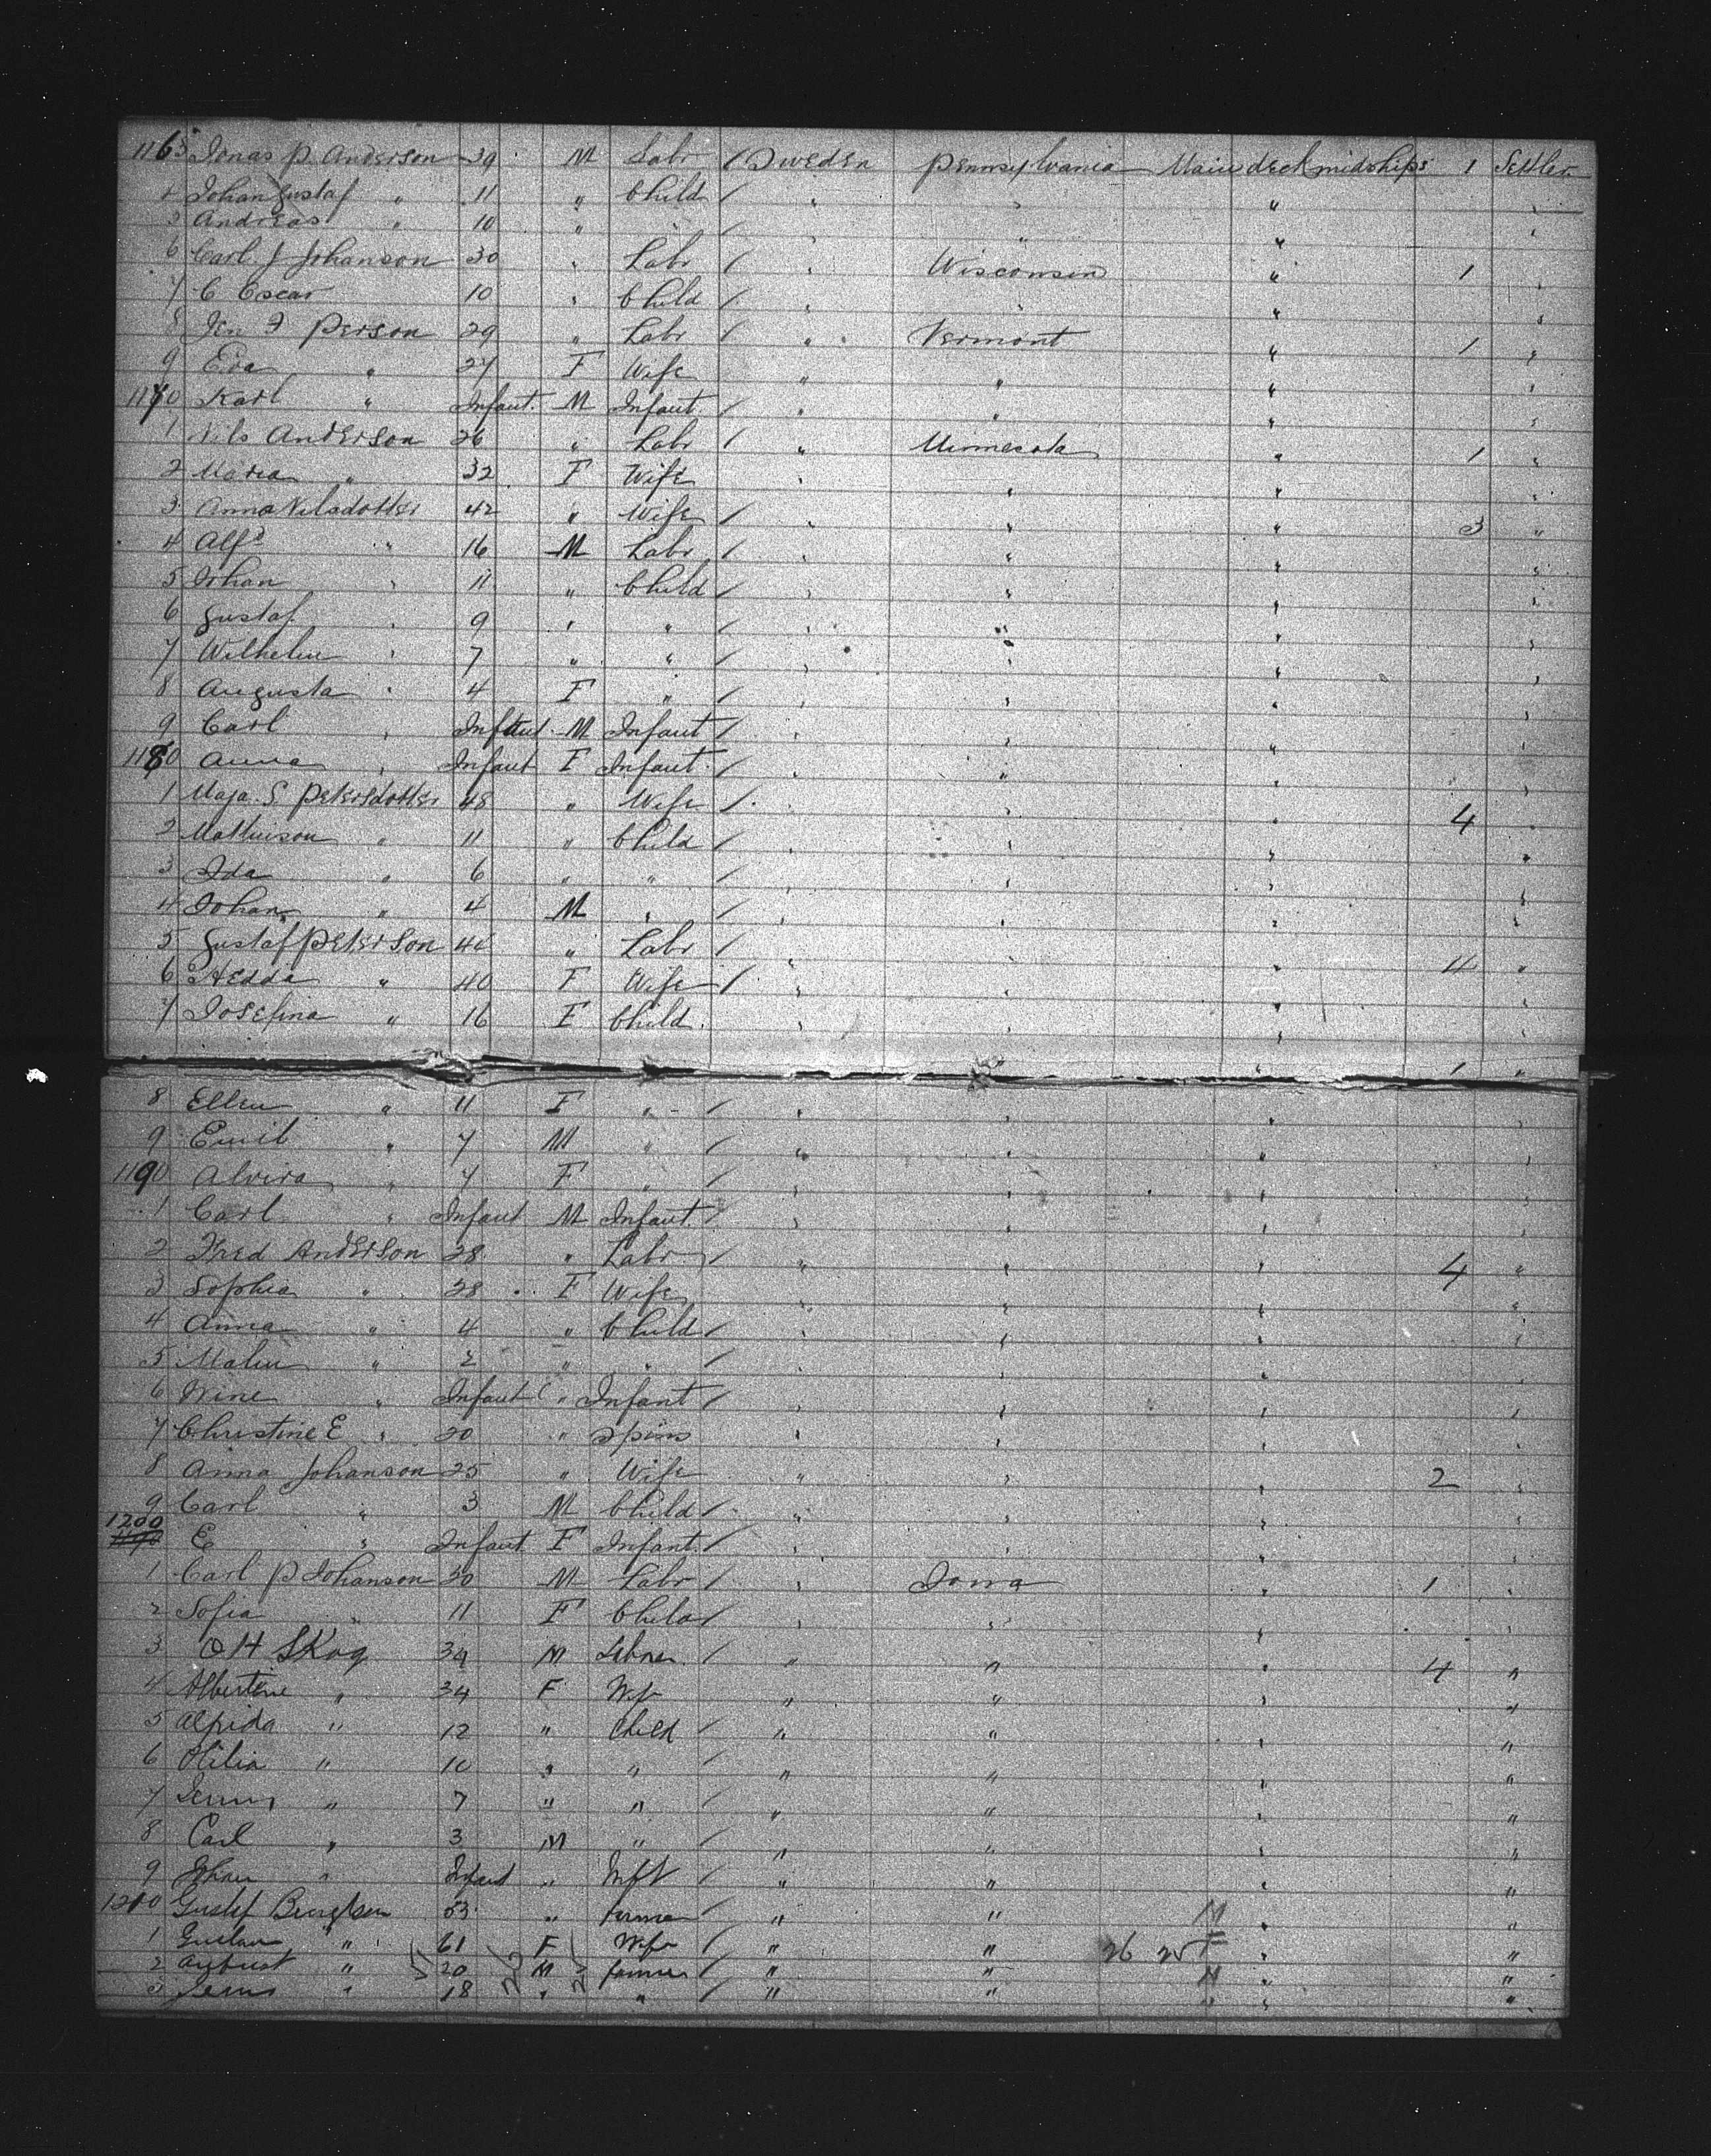 1163 Jonas P. Anderson 39 M Labr / Sweden Pennsylvania Main deck midships 1 Settler
4 Johan Gustaf " 11 " Child / " " " "
5 Andreas " 10 " " / " " " "
6 Carl. J Johanson 30 " Labr / " Wisconsin " 1 "
7 C Oscar 10 " Child / " " " "
8 Jen F Person 29 " Labr / " Vermont " 1 "
9 Eva " 27 F Wife " " " "
1170 Karl " Infant. M Infant. / " " " "
1 Nils Anderson 26 " Labr / " Minnesota " 1 "
2 Maria " 32 F Wife " " " "
3 Anna Nilsdotter 42 " Wife / " " " 3 "
4 Alfd " 16 M Labr / " " " "
5 Johan " 11 " Child / " " " "
6 Gustaf " 9 " " / " " " "
7 Wilhelm " 7 " " / " " " "
8 Augusta " 4 F " / " " " "
9 Carl " Infant M Infant / " " " "
1180 Anna " Infant F Infant / " " " "
1 Maja. S Petersdotter 48 " Wife / " " " 4 "
2 " 11 " Child / " " " "
3 Ida " 6 " " / " " " "
4 Johan " 4 M " / " " " "
5 Gustaf Peterson 44 " Labr / " " " 4 "
6 Hedda " 40 F Wife / " " " "
7 Josefina " 16 F Child " " " "
" 1 "
8 Ellen " 11 F " / " " " "
9 Emil " 7 M " / " " " "
1190 Alvira " 7 F " / " " " "
1 Carl " Infant M Infant / " " " "
2 Fred Anderson 28 " Labr / " " " 4 "
3 Sophia " 28 F Wife " " " "
4 Anna " 4 " Child / " " " "
5 Malin " 2 " " / " " " "
6 Nine " Infant " Infant / " " " "
7 Christine E " 20 " Spins " " " "
8 Anna Johanson 25 " Wife " " " 2 "
9 Carl " 3 M Child / " " " "
1200 E " Infant F Infant / " " " "
1 Carl P Johanson 30 M Labr / " Iowa " 1 "
2 Sofia " 11 F Child / " " " "
3 O H Skog 34 M Labrer / " " " 4 "
4 Albertine " 34 F Wife " " " "
5 Alfrida " 12 " Child / " " " "
6 Otilia " 10 " " / " " " "
7 " 7 " " / " " " "
8 Carl " 3 M " / " " " "
9 Johan " Infant " Inft / " " " "
1210 Gustf 53 " farmer " " M "
1 " 61 F Wife / " " 26 25 F " "
2 August " 51 20 26 M 25 farmer / " " M " "
3 " 18 " " / " " " " "